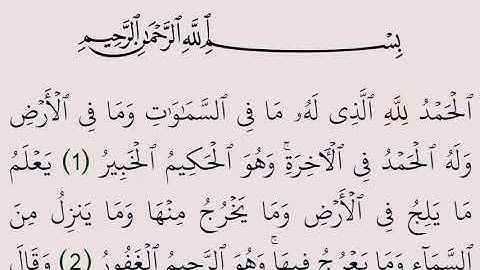 بِسْمِ ٱللَّهِ ٱلرَّحْمَٰنِ ٱلرَّحِيمِ
ٱلْحَمْدُ لِلَّهِ ٱلَّذِى لَهُۥ مَا فِى ٱلسَّمَٰوَٰتِ وَمَا فِى ٱلْأَرْضِ
وَلَهُ ٱلْحَمْدُ فِى ٱلْءَاخِرَةِ ۚ وَهُوَ ٱلْحَكِيمُ ٱلْخَبِيرُ (1) يَعْلَمُ
مَا يَلِجُ فِى ٱلْأَرْضِ وَمَا يَخْرُجُ مِنْهَا وَمَا يَنزِلُ مِنَ
ٱلسَّمَآءِ وَمَا يَعْرُجُ فِيهَا ۚ وَهُوَ ٱلرَّحِيمُ ٱلْغَفُورُ (2) وَقَالَ